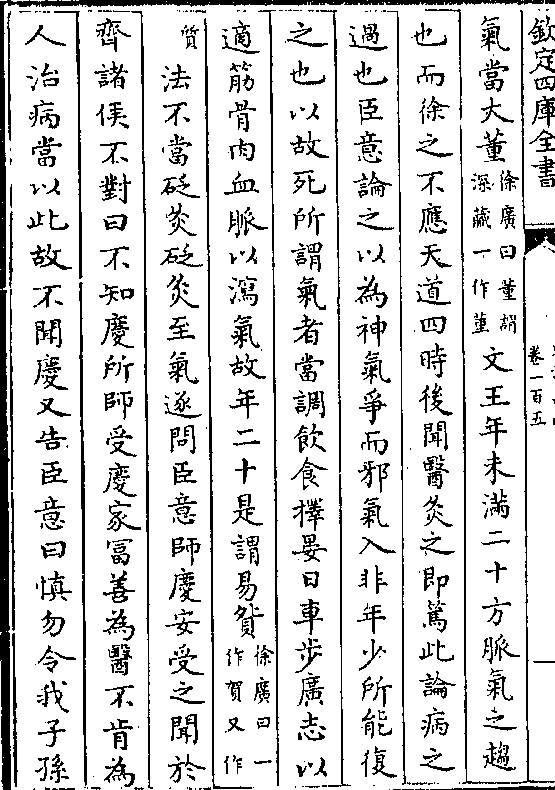 欽定四庫全書
卷一百五
氣當大董徐廣曰董謂深藏一作菫文王年未滿二十方脈氣之趨
也而徐之不應天道四時後聞醫灸之即篤此論病之
過也臣意論之以為神氣爭而邪氣入非年少所能復
之也以故死所謂氣者當調飲食擇晏日車步廣志以
適筋骨肉血脈以瀉氣故年二十是謂易貿徐廣曰一作賀又作
質法不當砭灸砭灸至氣逐問臣意師慶安受之聞於
齊諸侯不對曰不知慶所師受慶家富善為醫不肯為
人治病當以此故不聞慶又告臣意曰慎勿令我子孫